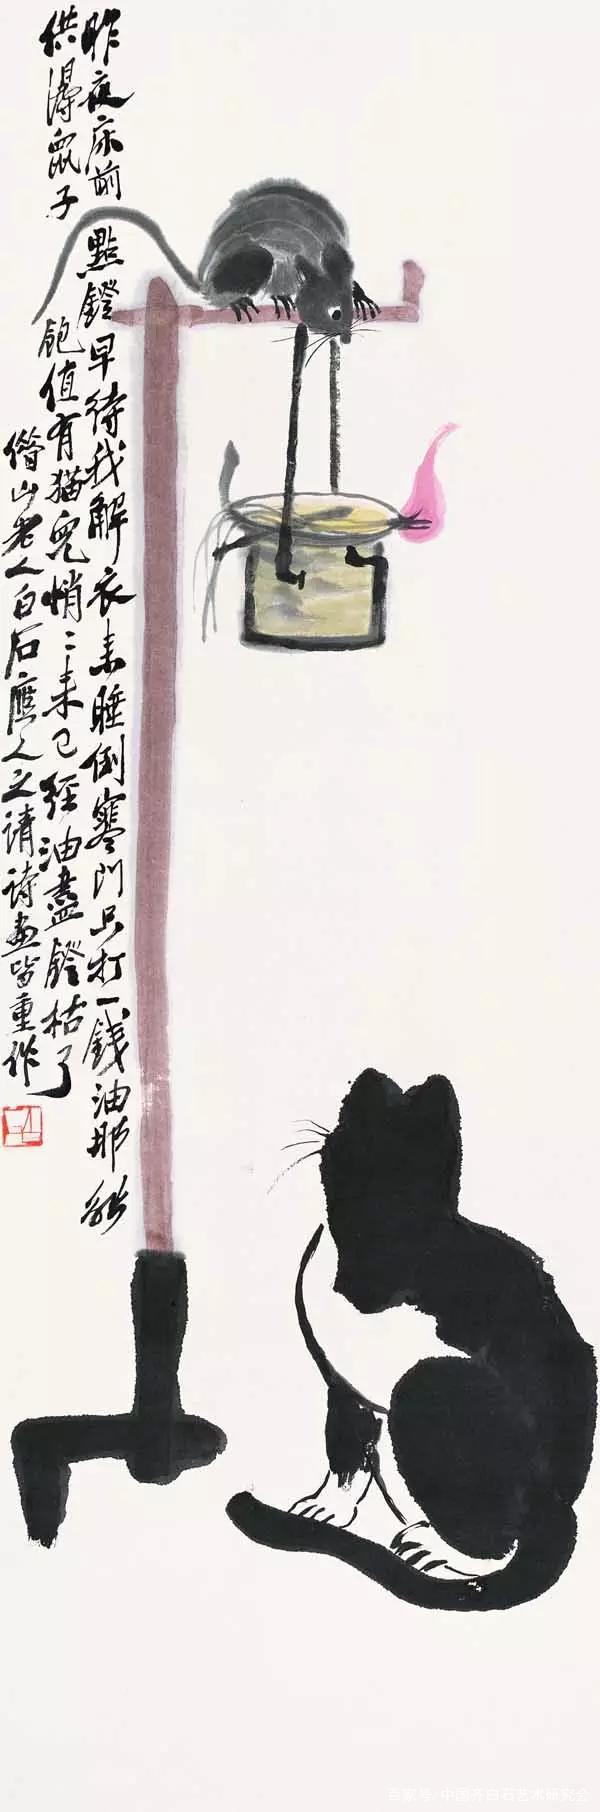 昨夜床前點鐙早待我解衣來睡倒寒門只打一錢油那能
供得鼠子飽值有猫兒悄〻來已經油盡鐙枯了
借山老人白石應人之請詩畫皆重作
百家号/中国齐白石艺术研究会